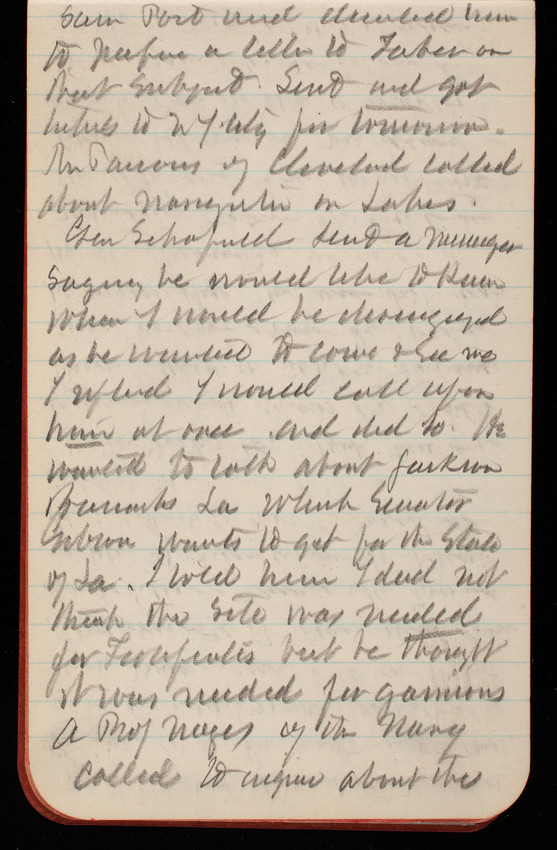 Sam Post and directed him
to prepare a letter to Faber on
that subject. Send and got
tickets to N Y city for tomorrow.
Mr Parsons of Cleveland called
about navigation on Lakes.
Gen Schofield send a messenger
saying he would like to know
when I would be disengaged
as he wanted to come & see me
I replied I would call upon
him at once and did so. He
wanted to talk about Jackson
Barracks La which Senator
Gibson wants to get for the State
of La. I told him I did not
think the site was needed
for Fortifications but he thought
it was needed for garrisons
A Prof of the Navy
called to inquire about the